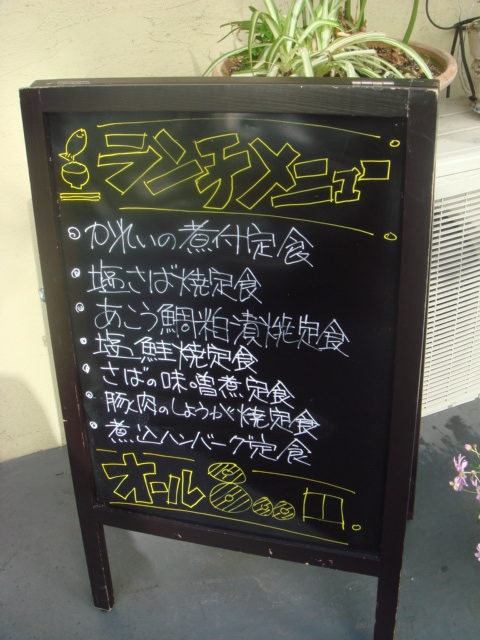 ランチメニュー
かれいの煮付定食
塩さば焼定食
あこう鯛粕漬焼定食
塩鮭焼定食
さばの味噌煮定食
豚肉のしょうが焼定食
煮込ハンバーグ定食
オール800円